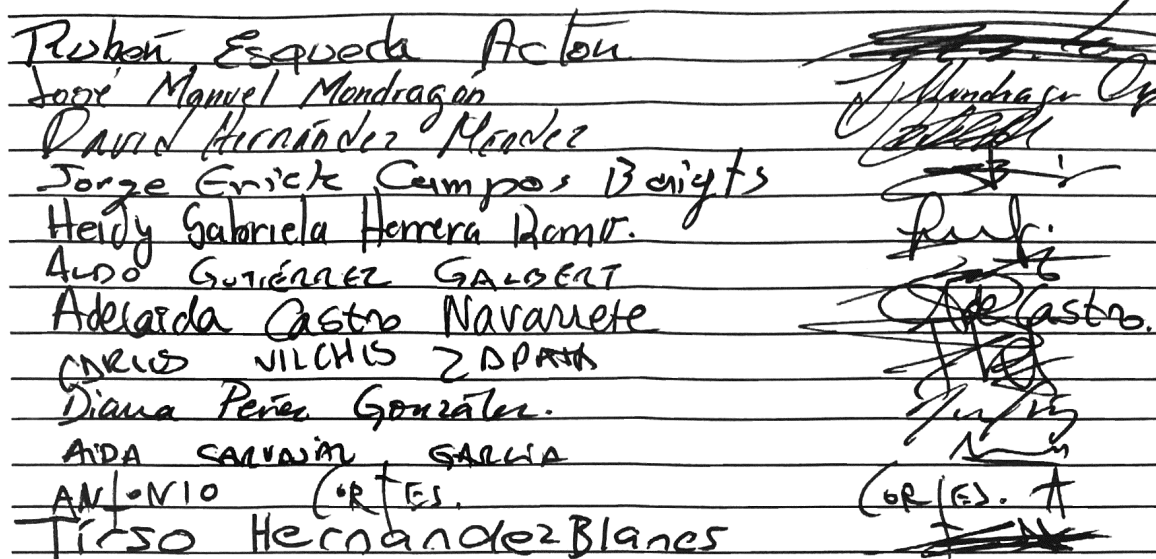 Rubén Esqueda Acton
José Manuel Mondragón J Mondragon
David Hernández Méndez
Jorge Erick Campos Baigts
Heidy Gabriela Herrera Romo.
ALDO GUTIÉRREZ GALBERT
Adelaida Castro Navarrete Ade Castro.
CARLOS VILCHIS ZAPATA
Diana Peñez González.
AIDA CARVAJAL GARCIA
ANTONIO CORTES. CORTES. A
Tirso Hernandez Blanes